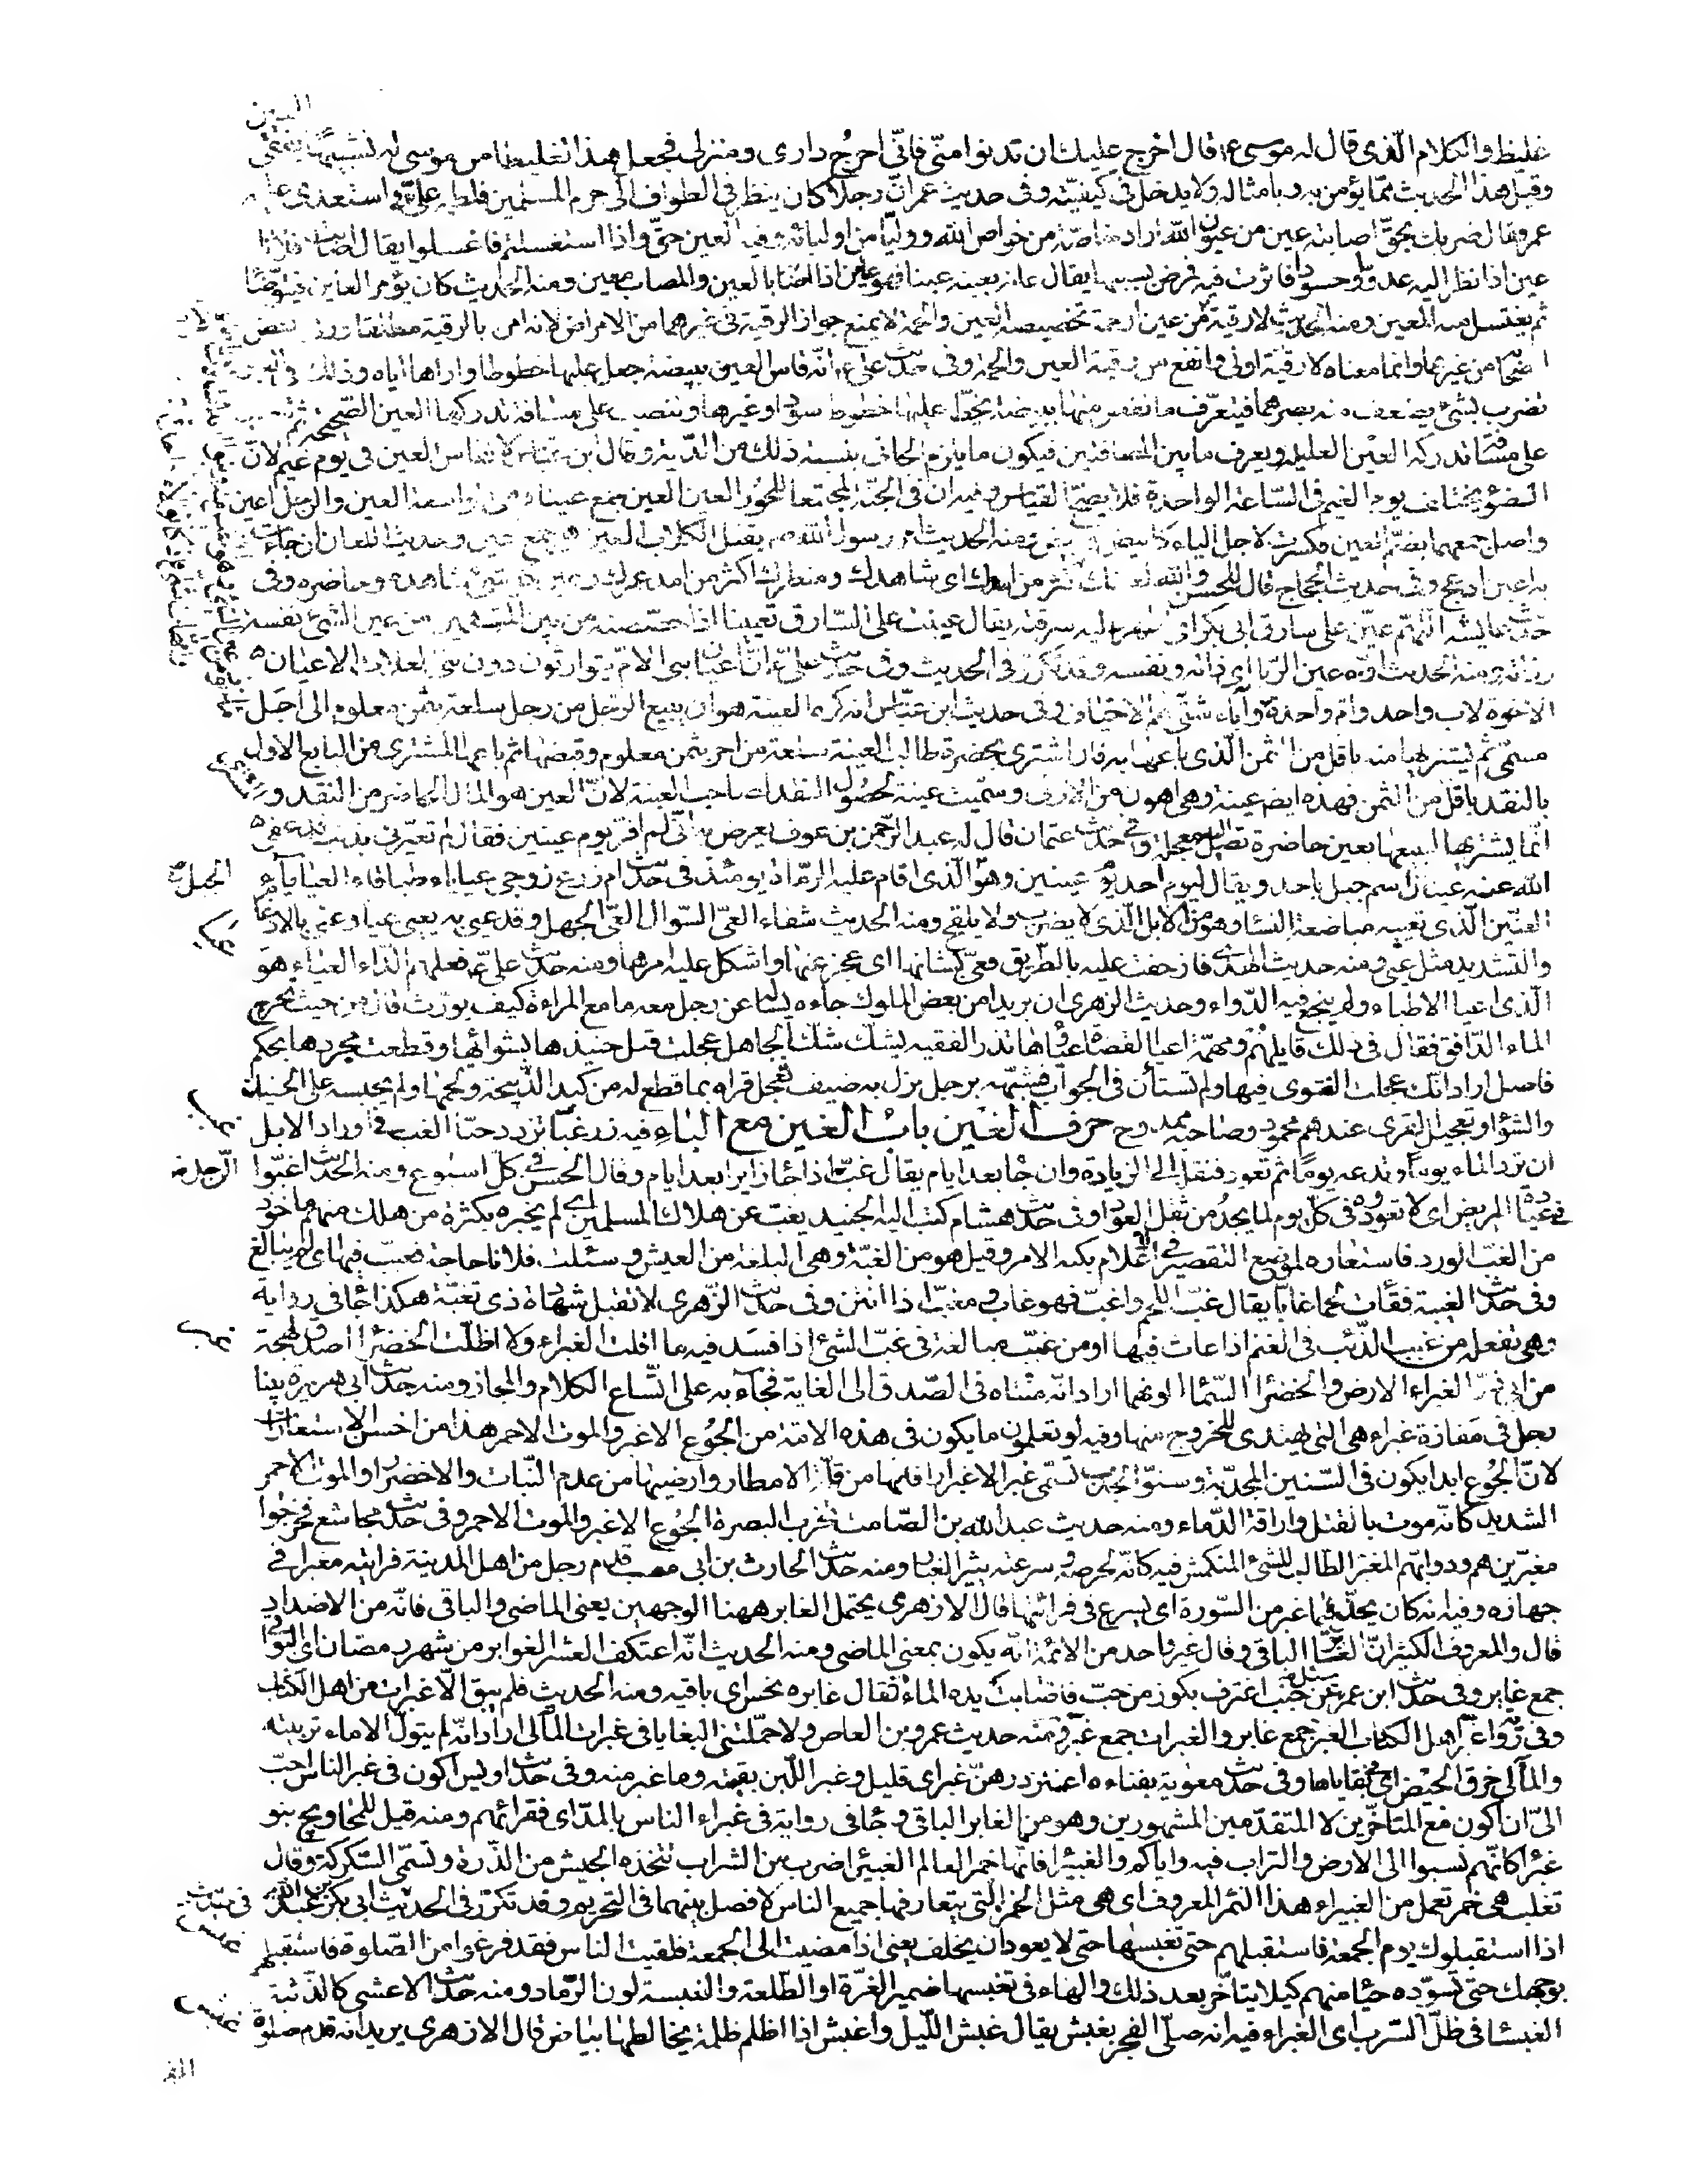 غليظ والكلام الذى قال له موسى ع قال اخرج عليك ان تدنوا منى فانى احرج دارى ومنزلى فجعل هذا تغليظا من موسى له تشبيها
وقيل هذا الحديث مما يؤمن به وبامثاله ولا يدخل فى كيفيته وفى حديث عمر ان رجلا كان ينظر فى الطواف الى حرم المسلمين فلطمه على ع فاستعدى عليه
عمر فقال ضربك بحق اصابته عين من عيون الله اراد خاصة من خواص الله ووليا من اوليائه وفيه العين حق واذا استغسلتم فاغسلوا يقال اصابت فلانا
عين اذا نظر اليه عدو او حسود فاثرت فيه فمرض بسببها يقال عانه يعينه عينا فهو عاين اذا اصابه بالعين والمصاب معين ومنه الحديث كان يؤمر العاين فيتوضأ
ثم يغتسل منه المعين ومنه الحديث لا رقية الا من عين او حمة تخصيصه العين والحمة لا يمنع جواز الرقية فى غيرهما من الامراض لانه امر بالرقية مطلقا
من غيرهما وانما معناه لا رقية اولى وانفع من رقية العين والحمة وفى حديث على ع انه قاس العين ببيضة جعل عليها خطوطا واراها اياه وذلك فى العين
تضرب بشئ يضعف منه بصرها فيتعرف ما نقص منها ببيضة يخط عليها خطوط سود او غيرها وتنصب على مسافة تدركها العين الصحيحة ثم
على مسافة تدركه العين العليلة ويعرف ما بين المسافتين فيكون ما يلزم الجانى بنسبة ذلك من الدية وقال ابن عباس لا تقاس العين فى يوم غيم لان
الضوء يختلف يوم الغيم فى الساعة الواحدة فلا يصح القياس وفيه ان فى الجنة لمجتمعا للحور العين العين جمع عيناء وهى الواسعة العين والرجل اعين
واصل جمعها بضم العين فكسرت لاجل الياء ومنه الحديث امر رسول الله بقتل الكلاب العين هو جمع اعين وحديث اللعان ان جاءت
به اعين ادعج وفى حديث الحجاج قال للحسن والله لعينك اكبر من امدك اى شاهدك ومنظرك اكثر من امد عمرك وعين كل شئ شاهده وحاضره وفى
حديث عايشه اللهم عين على سارق ابى بكر اى اظهر عليه سرقته يقال عينت على السارق تعيينا اذا خصصته من بين المتهمين من عين الشئ نفسه
وذاته ومنه الحديث اوه عين الربا اى ذاته ونفسه وقد تكرر فى الحديث وفى حديث على ع ان اعيان بنى الام يتوارثون دون بنى العلات الاعيان
الاخوة لاب واحد وام واحدة وفى حديث ابن عباس انه كره العينة هو ان يبيع الرجل من رجل سلعة بثمن معلوم الى اجل
مسمى ثم يشتريها منه باقل من الثمن الذى باعها به فان اشترى بحضرة طالب العينة سلعة من اخر بثمن معلوم وقبضها ثم باعها المشترى من البايع الاول
بالنقد باقل من الثمن فهذه ايضا عينة وهى اهون من الاولى وسميت عينة لحصول النقد لصاحب العينة لان العين هو المال الحاضر من النقد
انما يشتريها ليبيعها بعين حاضرة تصل اليه معجلة وفى حديث عثمان قال له عبد الرحمن بن عوف يعرض به انى لم افر يوم عينين فقال لم تعيرنى بذنب قد عفى
الله عنه عينان اسم جبل باحد ويقال ليوم احد يوم عينين وهو الذى اقام عليه الرماة يومئذ فى حديث ام زرع زوجى عياياء طباقاء العياياء
العنين الذى تعييه مباضعة النساء وهو من الابل الذى لا يضرب ولا يلقح ومنه الحديث شفاء العى السؤال العى الجهل وقد عيى به يعيى عيا وعى بالادغام
والتشديد مثل عيى ومنه حديث الهدى فازحفت عليه بالطريق فعى بشانها اى عجز عنها واشكل عليه امرها ومنه حديث على ع فعلهم الداء العياء هو
الذى اعيا الاطباء ولم ينجع فيه الدواء وحديث الزهرى ان بريدا من بعض الملوك جاءه يسأله عن رجل معه ما مع المراة كيف يورث قال من حيث يخرج
الماء الدافق فقال فى ذلك قايلهم ومهمة اعيا القضاة عياؤها تذر الفقيه يشك شك الجاهل عجلت قبل حنيذها بشوائها وقطعت محردها بحكم
فاصل اراد انك عجلت الفتوى فيها ولم تستأن فى الجواب فشبهه برجل نزل به ضيف فعجل قراه بما قطع له من كبد الذبيحة ولحمها ولم يحبسه على الحنيذ
والشوا وتعجيل القرى عندهم محمود وصاحبه ممدوح حرف الغين باب الغين مع الباء فيه زر غبا تزدد حبا الغب فى اوراد الابل
ان ترد الماء يوما وتدعه يوما ثم تعود فنقل الى الزيادة وان جاء بعد ايام يقال غب اذا جاء زايرا بعد ايام وقال الحسن فى كل اسبوع ومنه الحديث اغبوا
فى عيادة المريض اى لا تعوده فى كل يوم لما يجد من ثقل العواد وفى حديث هشام كتب اليه الجنيد يغب عن هلاك المسلمين اى لم يخبره بكثرة من هلك منهم ماخوذ
من الغب الورد فاستعاره لموضع التقصير فى الاعلام بكنه الامر وقيل هو من الغبة وهى البلغة من العيش وسئلت فلانا حاجة فغبب فيها اى لم يبالغ
وفى حديث الغيبة فقأت لحما غابا يقال غب اللحم واغب فهو غاب ومغب اذا انتن وفى حديث الزهرى لا تقبل شهادة ذى تغبة هكذا جاء فى رواية
وهى تفعلة من غبب الذئب فى الغنم اذا عاث فيها او من غبب مبالغة فى غب الشئ اذا فسد فيه ما اقلت الغبراء ولا اظلت الخضراء اصدق لهجة
من ابى ذر الغبراء الارض والخضراء السماء للونهما اراد انه متناه فى الصدق الى الغاية فجاء به على اتساع الكلام والمجاز ومنه حديث ابى هريرة بينا
رجل فى مفازة غبراء هى التى لا يهتدى للخروج منها وفيه لو تعلمون ما يكون فى هذه الامة من الجوع الاغبر والموت الاحمر هذا من احسن الاستعارات
لان الجوع ابدا يكون فى السنين المجدبة وسنو الجدب تسمى غبرا لاغبرار افاقها من قلة الامطار وارضيها من عدم النبات والاخضرار والموت الاحمر
الشديد كانه موت بالقتل واراقة الدماء ومنه حديث عبد الله بن الصامت يخرب البصرة الجوع الاغبر والموت الاحمر وفى حديث مجاشع فخرجوا
مغبرين هم ودوابهم المغبر الطالب للشئ المنكمش فيه كانه لحرصه وسرعته يثير الغبار ومنه حديث الحارث بن ابى مصعب قدم رجل من اهل المدينة فرايته مغبرا فى
جهازه وفيه انه كان يحدر فيما غبر من السورة اى يسرع فى قرائتها قال الازهرى يحتمل الغابر ههنا الوجهين يعنى الماضى والباقى فانه من الاضداد
قال والمعروف الكثير ان الغابر الباقى وقال غير واحد من الائمة انه يكون بمعنى الماضى ومنه الحديث انه اعتكف العشر الغوابر من شهر رمضان اى البواقى
جمع غابر وفى حديث ابن عمر سئل عن جنب اغترف بكوز من حب فاصابت يده الماء فقال غابره نجس اى باقيه ومنه الحديث فلم يبق الا غبرات من اهل الكتاب
وفى رواية غبر اهل الكتاب الغبر جمع غابر والغبرات جمع غبر ومنه حديث عمرو بن العاص ولا حملتنى البغايا فى غبرات المآلى اراد انه لم يتول الاماء تربيته
والمآلى خرق الحيض اى فى بقاياها وفى حديث معوية بفنائه اعنز درهن غبر اى قليل وغبر اللبن بقيته وما غبر منه وفى حديث اويس اكون فى غبر الناس احب
الى ان اكون مع المتاخرين لا المتقدمين المشهورين وهو من الغابر الباقى وجاء فى رواية فى غبراء الناس بالمد اى فقرائهم ومنه قيل للمحاويج بنو
غبراء كانهم نسبوا الى الارض والتراب فيه واياكم والغبيراء فانها خمر العالم الغبيراء ضرب من الشراب تتخذه الحبش من الذرة وتسمى السكركة وقال
ثعلب هى خمر تعمل من الغبيراء هذا الثمر المعروف اى هى مثل الخمر التى يتعارفها جميع الناس لا فصل بينهما فى التحريم وقد تكرر فى الحديث ابى بكر بن عبد الله
اذا استقبلوك يوم الجمعة فاستقبلهم حتى تغبسها حتى لا يعود ان يخلف يعنى اذا مضيت الى الجمعة فلقيت الناس فقد فرغوا من الصلوة فاستقبلهم
بوجهك حتى تسوده حياء منهم كيلا يتاخر بعد ذلك والهاء فى تغبسها ضمير الغرة او الطلعة والغبسة لون الرماد ومنه حديث الاعشى كالذئبة
الغبساء فى ظل السرب اى الغبراء فيه انه صلى الفجر بغبش يقال غبش الليل واغبش اذا اظلم ظلمة يخالطها بياض قال الازهرى يريد انه قدم صلوة
عيا
غبب
غبر
غبس
غبش